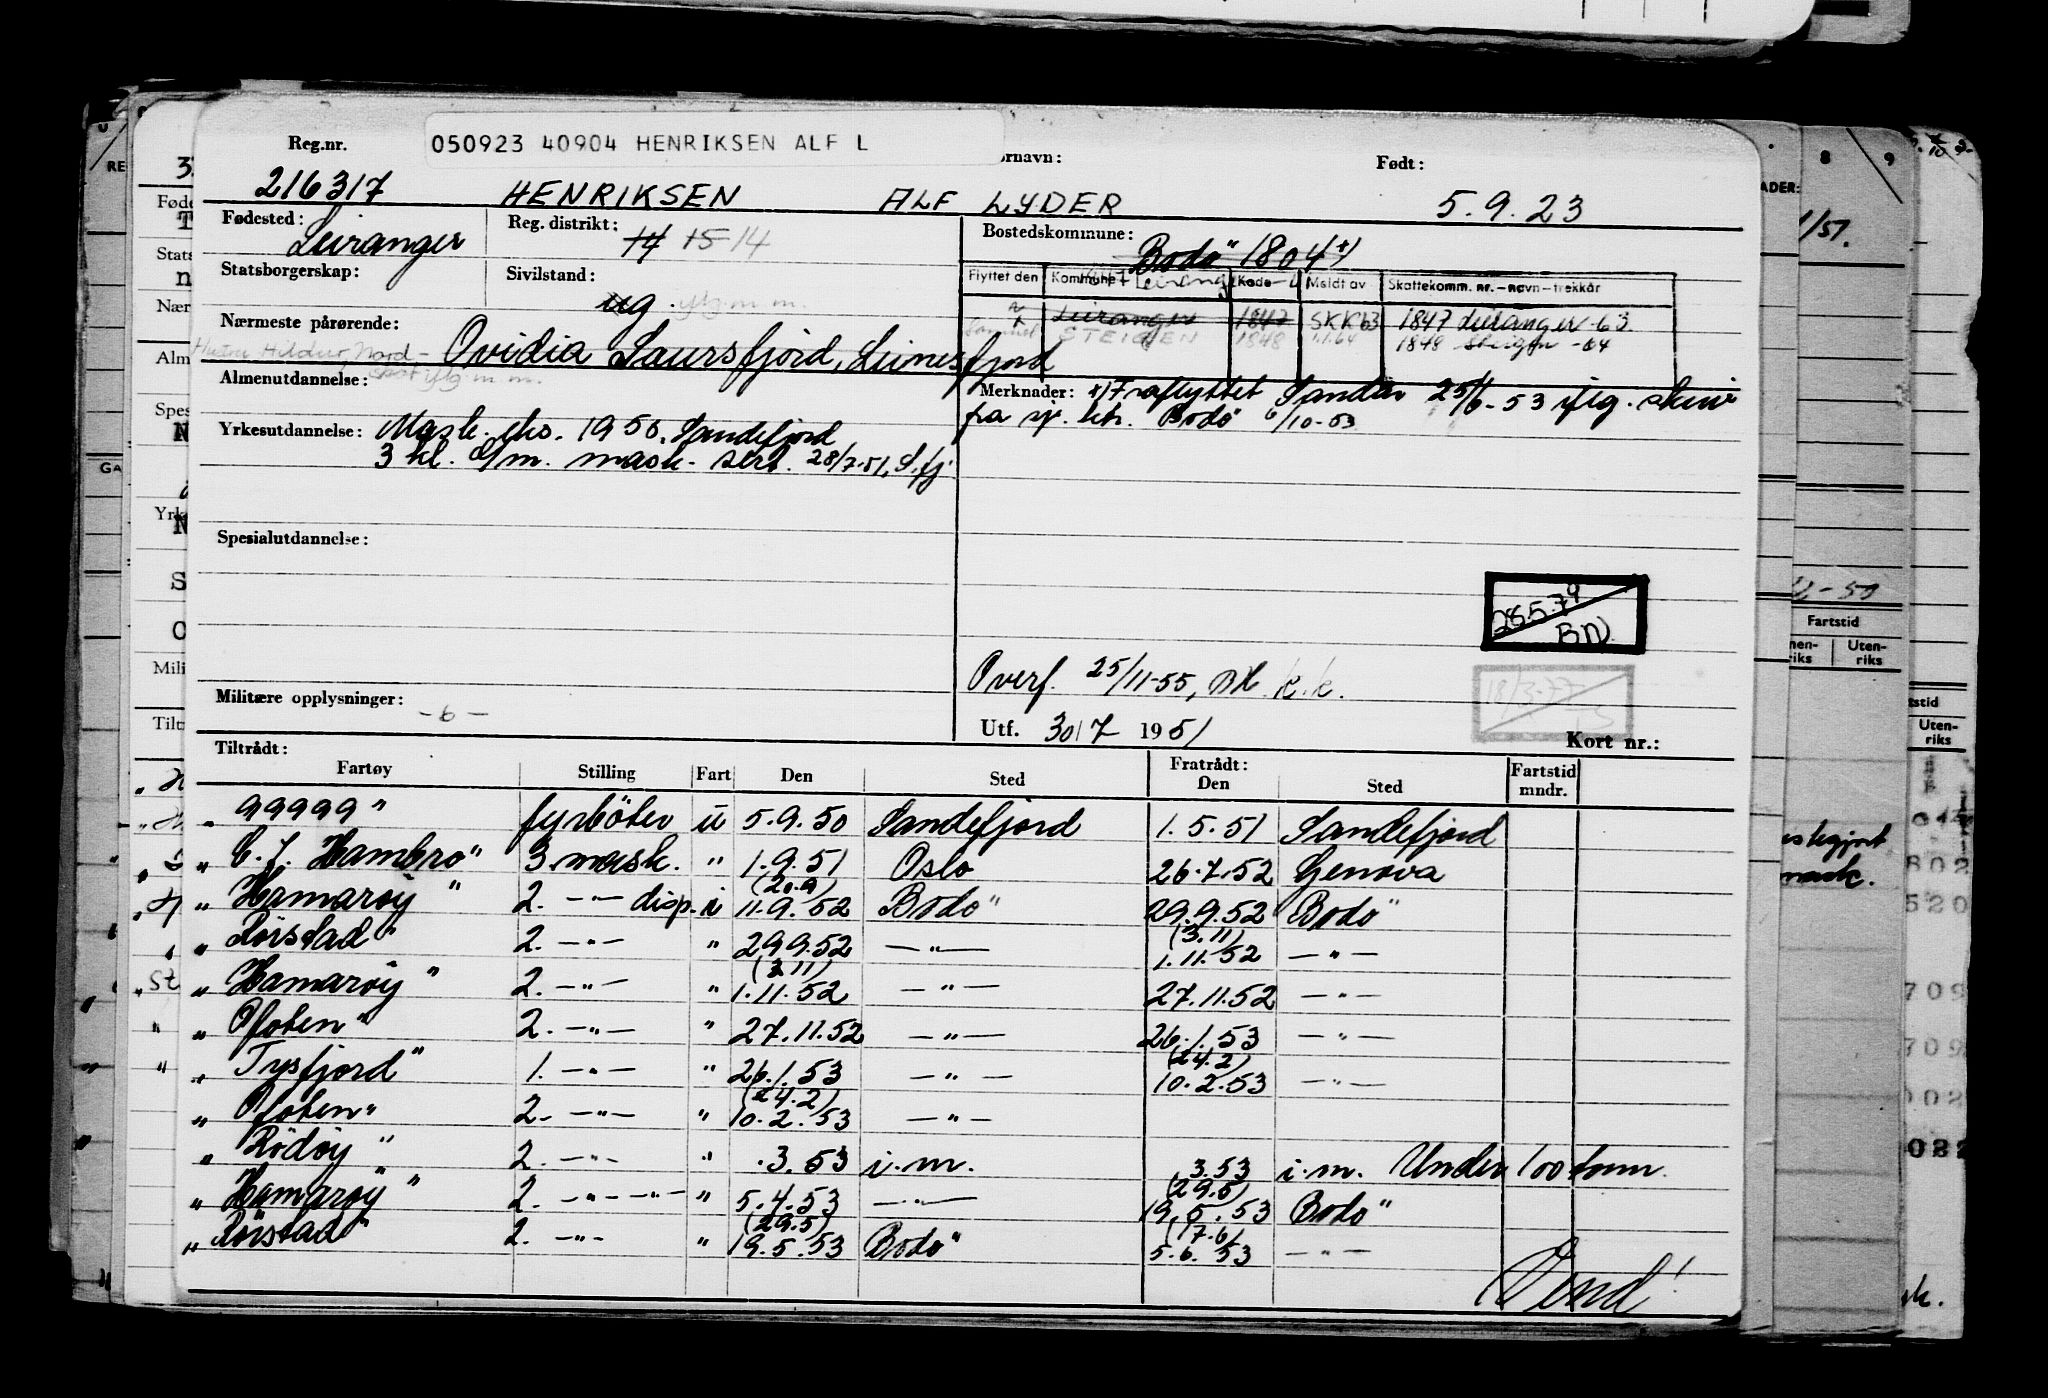 Reg.nr.
050923 40904 HENRIKSEN ALF L
ornavn:
Født:
216317 HENRIKSEN ALF LYDER 5.9.23
Fødested: Leiranger
Reg. distrikt: 14 15 14
Bostedskommune: Bodö 1804 +)
Statsborgerskap:
Sivilstand: ug.
Flyttet den Kommune Kode Meldt av Skattekomm. nr. - navn - trekkår
Leiranger 1847 SKK 63 1847 Leiranger - 63
STEIGEN 1848 1.1.64 1848 Steigen - 64
Nærmeste pårørende: Ovidia Laursfjord, Leinesfjord
Hustru Hildur Nord-
Almenutdannelse:
Merknader: x) Fraflyttet Sandar 25/6-53 iflg. skriv
fra sj. ktr. Bodö 6/10-53
Yrkesutdannelse: Mask. eks. 1950, Sandefjord
3 kl. d/m. mask. sert. 28/7-51, S.fj
Spesialutdannelse:
28.5.79
BN
Overf. 25/11-55, k.k.
18/3-77
Militære opplysninger: - 6 -
Utf. 30/7 1951
Kort nr.:
Tiltrådt:
Fartøy Stilling Fart Den Sted Fratrådt: Den Sted Fartstid mndr.
" 99999" fyrböter u 5.9.50 Sandefjord 1.5.51 Sandefjord
" C. J. Hambro" 3 mask. " 1.9.51 Oslo 26.7.52 Genova
(20.9)
" Hamaröy" 2. -"- disp. i 11.9.52 Bodö" 29.9.52 Bodö"
(3.11)
" Rörstad" 2. -"- " 29.9.52 -"- 1.11.52 -"-
(3.11)
" Hamaröy" 2. -"- " 1.11.52 -"- 27.11.52 -"-
" Ofoten" 2. -"- " 27.11.52 -"- 26.1.53 -"-
(24.2)
" Tysfjord" 1. -"- " 26.1.53 -"- 10.2.53 -"-
(24.2)
" Ofoten" 2. -"- " 10.2.53 -"-
" Rödöy" 2. -"- " .3.53 i.m. .3.53 i.m. Under 100 tonn.
(29.5)
" Hamaröy" 2. -"-"- " 5.4.53 -"- 19.5.53 Bodö"
(29.5) (17.6)
" Rörstad" 2. -"- " 19.5.53 Bodö" 5.6.53 -"-
Vend!